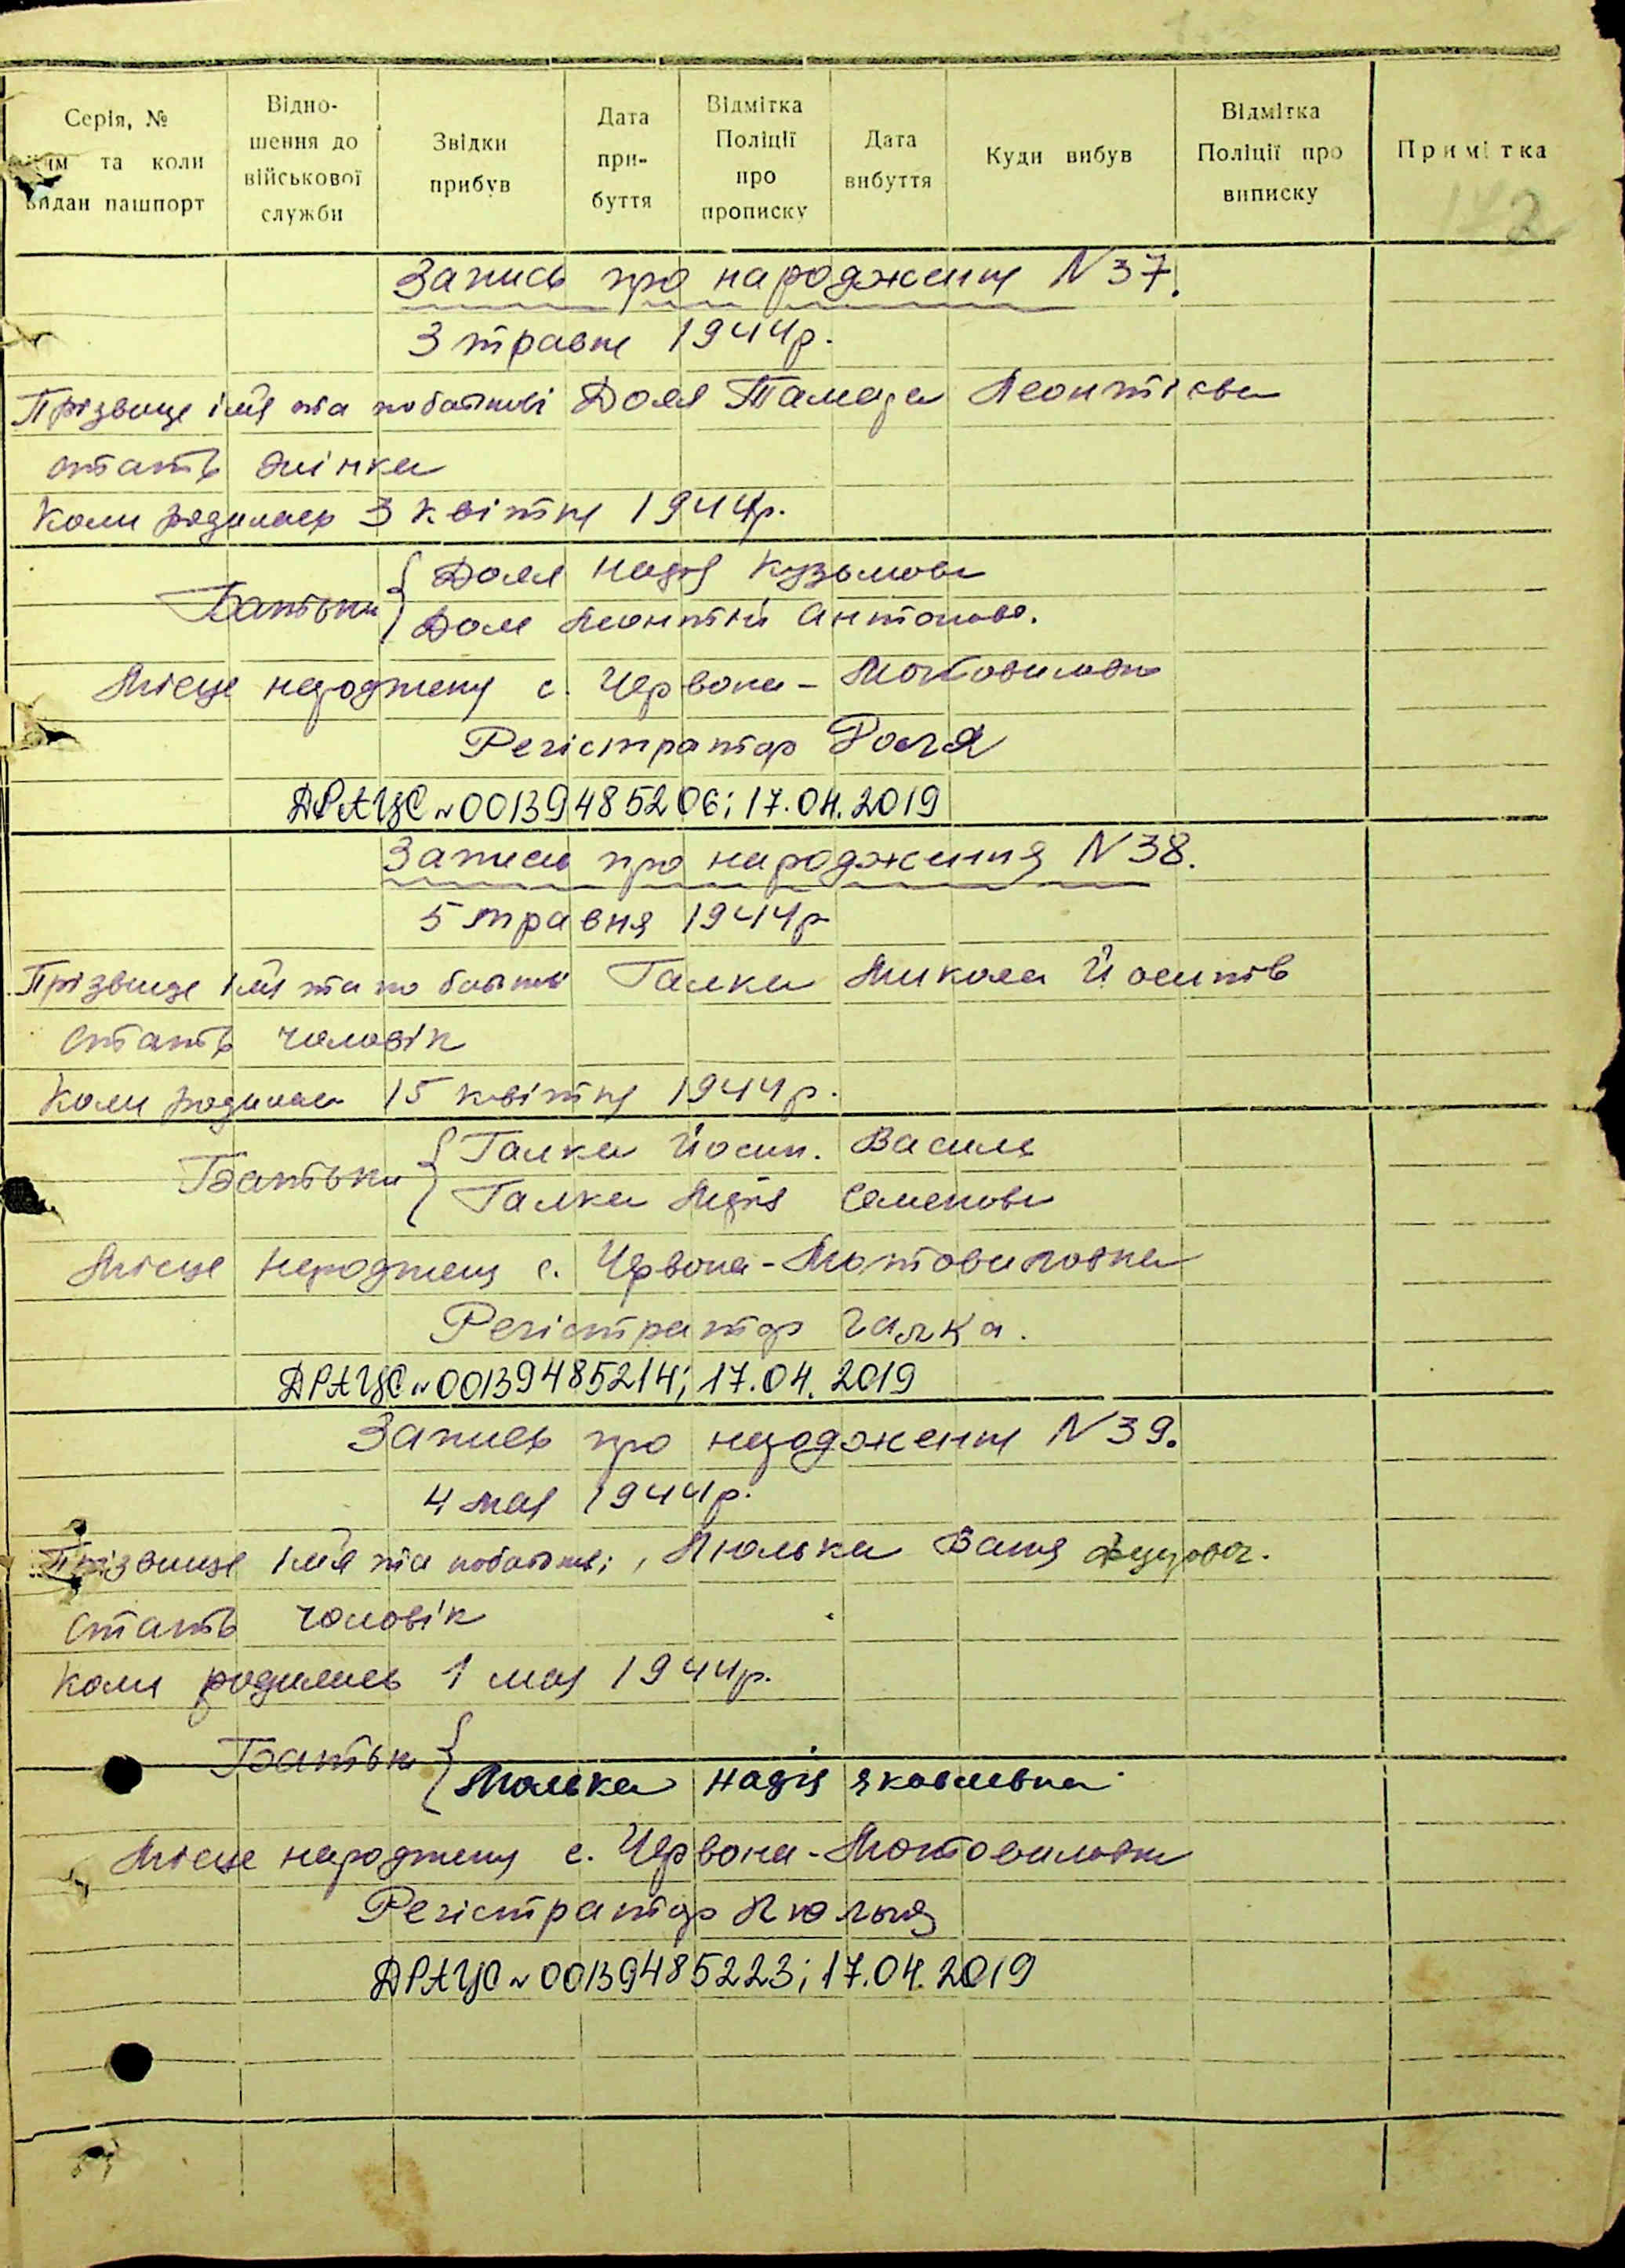 Серія, №
ким та коли
видан пашпорт
Відно-
шення до
військової
служби
Звідки
прибув
Дата
при-
буття
Відмітка
Поліції
про
прописку
Дата
вибуття
Куди вибув
Відмітка
Поліції про
виписку
Примітка
142
Запись про народження N 37.
3 травня 1944р.
Прізвище імя та побатькові Доля Тамара Леонтієва
стать жінка
Коли родилась 3 квітня 1944р.
Батьки { Доля Надія Кузьмова
Доля Леонтій Антонов.
Місце народження с. Червона-Мотовиловка
Регістратор Доля
ДРАЦС N 00139485206; 17.04.2019
Запись про народження N 38.
5 травня 1944р
Прізвище імя та по батькові Галка Микола Йосипів
стать чоловік
Коли родилась 15 квітня 1944р.
Батьки { Галка Йосип. Василь
Галка Лідія Семенова
Місце народження с. Червона-Мотовиловка
Регістратор Галка.
ДРАЦС N 00139485214; 17.04.2019
Запись про народження N 39.
4 мая 1944р.
Прізвище імя та побатькові, Люлька Ваня
стать чоловік
Коли родилась 1 мая 1944р.
Батьки { Люлька Надія Яковлевна
Місце народження с. Червона-Мотовиловка
Регістратор
ДРАЦС N 00139485223; 17.04.2019